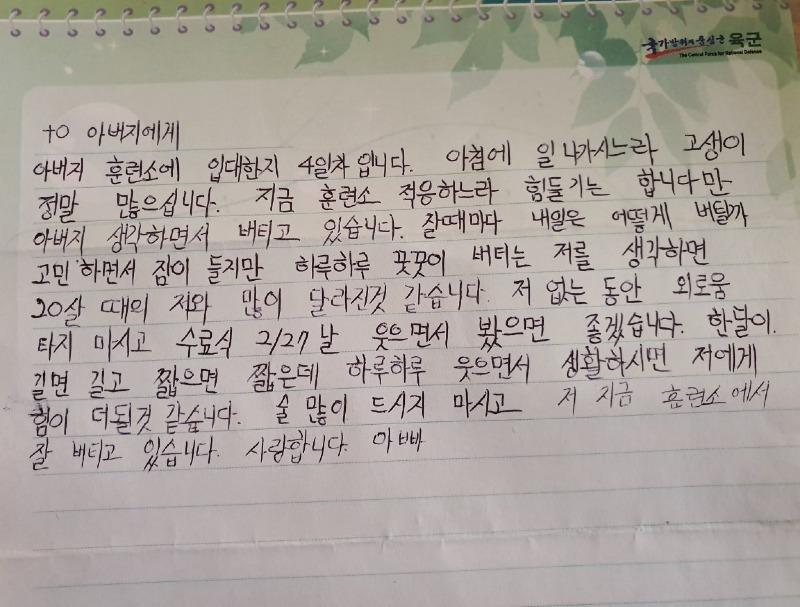 국가방위의 중심군 육군
The Central Force for National Defense
to 아버지에게
아버지 훈련소에 입대한지 4일차 입니다. 아침에 일 나가시느라 고생이
정말 많으십니다. 지금 훈련소 적응하느라 힘들기는 합니다만
아버지 생각하면서 버티고 있습니다. 잘때마다 내일은 어떻게 버틸까
고민 하면서 잠이 들지만 하루하루 꿋꿋이 버티는 저를 생각하면
20살 때의 저와 많이 달라진것 같습니다. 저 없는 동안 외로움
타지 마시고 수료식 2/27날 웃으면서 봤으면 좋겠습니다. 한달이
길면 길고 짧으면 짧은데 하루하루 웃으면서 생활하시면 저에게
힘이 더될것 같습니다. 술 많이 드시지 마시고 저 지금 훈련소에서
잘 버티고 있습니다. 사랑합니다. 아빠